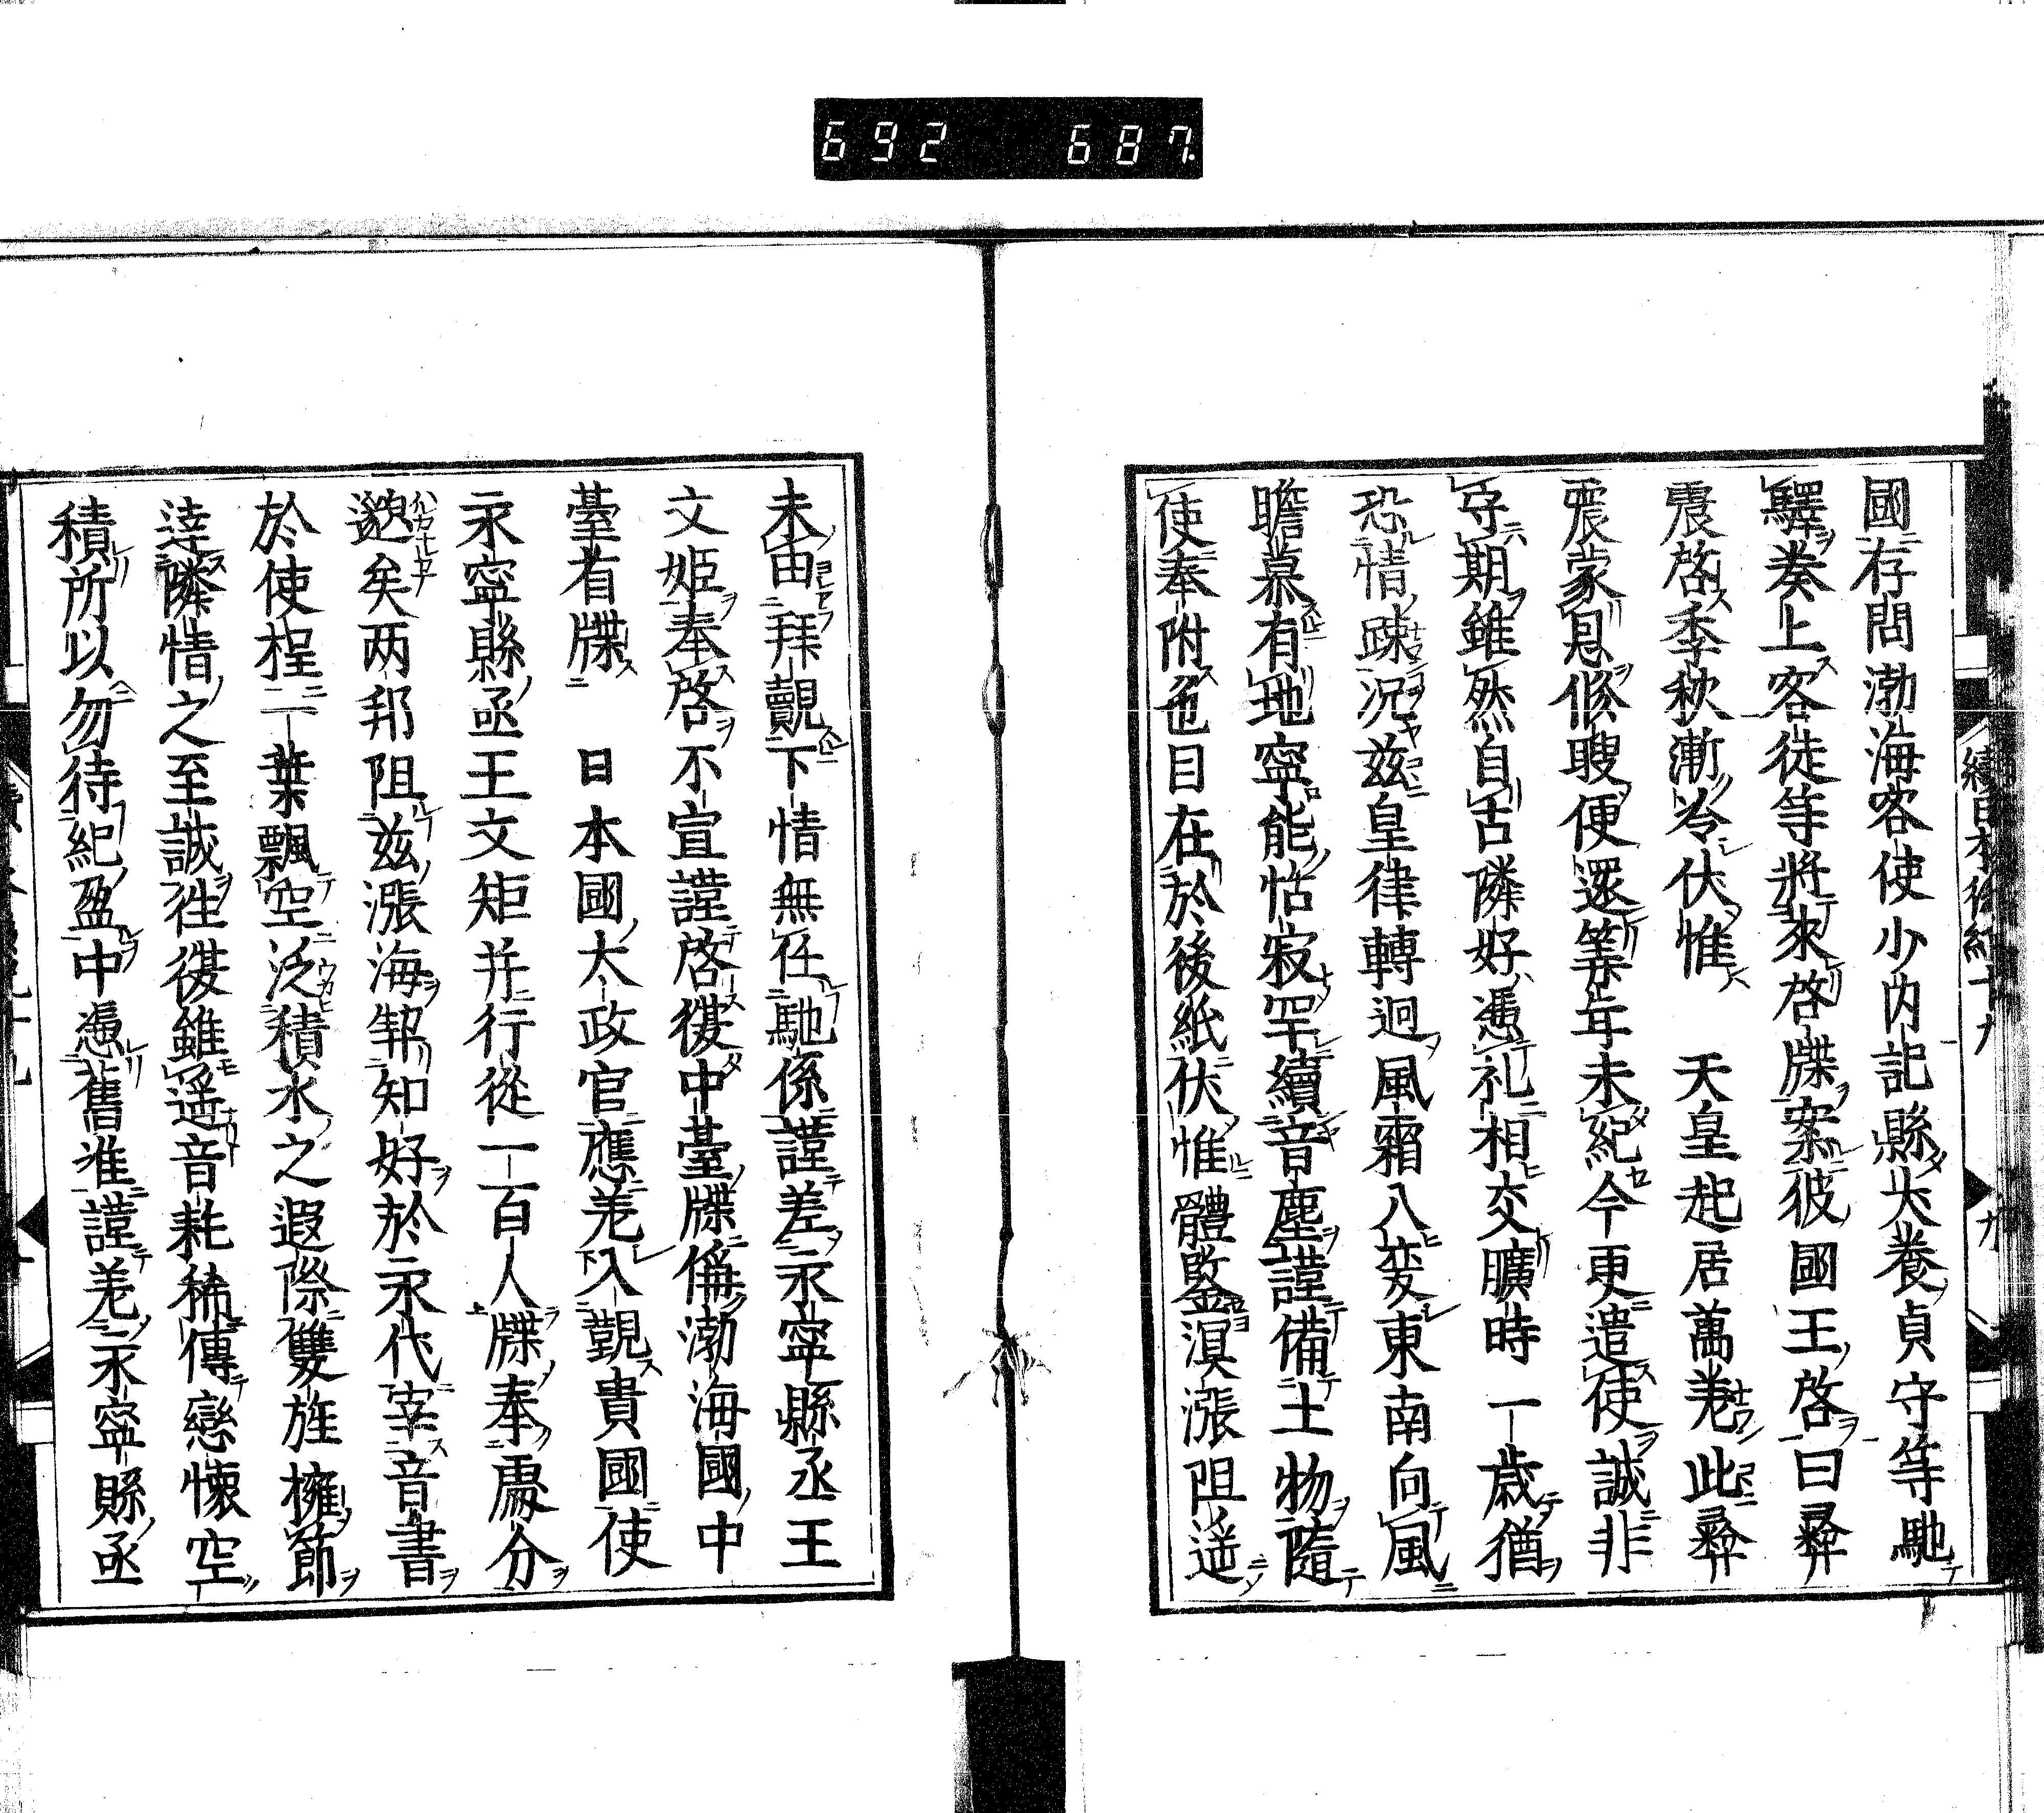 692 687
國存問渤海客使少内記縣犬養貞守等馳
驛奏上客徒等將來啓牒案彼國王啓曰彛
震啓季秋漸冷伏惟 天皇起居萬福此彛
震蒙恩修聘使還等年未紀今更遣使誠非
守期雖然自古隣好憑礼相交曠時一歳猶
恐情踈况兹皇律轉迴風霜八変東南向風
瞻慕有地寧能恬寂罕續音塵謹備土物隨
使奉附色目在於後紙伏惟體鑒溟漲阻遥
未由拜覿下情無任馳係謹差永寧縣丞王
文姫奉啓不宣謹啓復中臺牒偁渤海國中
臺有牒 日本國太政官應差入覲貴國使
永寧縣丞王文矩并行從一百人牒奉處分
邈矣两邦阻兹漲海契知好於永代宰音書
於使程一葉飄空泛積水之遐際雙旌擁節
達隣情之至誠徃復雖遥音耗稀傳戀懐空
積所以勿待紀盈中憑舊准謹差永寧縣丞